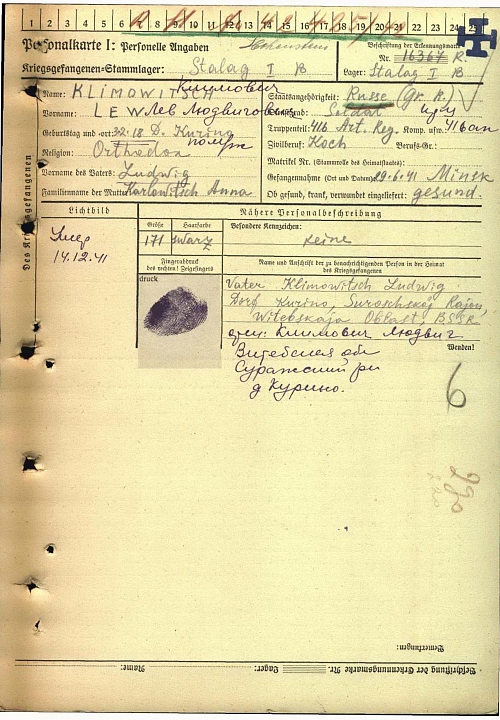 1 2 3 4 5 6 7 8 9 10 11 12 13 14 15 16 17 18 19 20 21 22 23 24 25
Personalkarte I: Personelle Angaben
Beschriftung der Erkennungsmarke
Nr. 16367 R.
Kriegsgefangenen-Stammlager: Stalag I B
Lager: Stalag I B
Des Kriegsgefangenen
Name: KLIMOWITSCH Климович
Staatsangehörigkeit: Russe (Gr. R.)
Vorname: LEW Лев Людвигович
Dienstgrad: Soldat
Geburtstag und -ort: D. Kurino
Truppenteil: 416 Art. Reg. Komp. usw.:
Religion: Orthodox
Zivilberuf: Koch Berufs-Gr.:
Matrikel Nr. (Stammrolle des Heimatstaates):
Vorname des Vaters: Ludwig
Gefangennahme (Ort und Datum): 29.6.41 Minsk
Familienname der Mutter: Karlowitsch Anna
Ob gesund, krank, verwundet eingeliefert: gesund.
Lichtbild
Nähere Personalbeschreibung
Größe
Haarfarbe
Besondere Kennzeichen:
171 swarz
keine
Умер
14.12.41
Fingerabdruck
des rechten! Zeigefingers
Name und Anschrift der zu benachrichtigenden Person in der Heimat
des Kriegsgefangenen
druck
Vater Klimowitsch Ludwig
Dorf Kurino, Suroschskij Rajon,
Witebskaja Oblast BSSR
отец: Климович Людвиг
Wenden!
Витебская обл
Суражский р-н
д Курино.
6
290
Bemerkungen:
Beschriftung der Erkennungsmarke Nr.
Lager:
Name: